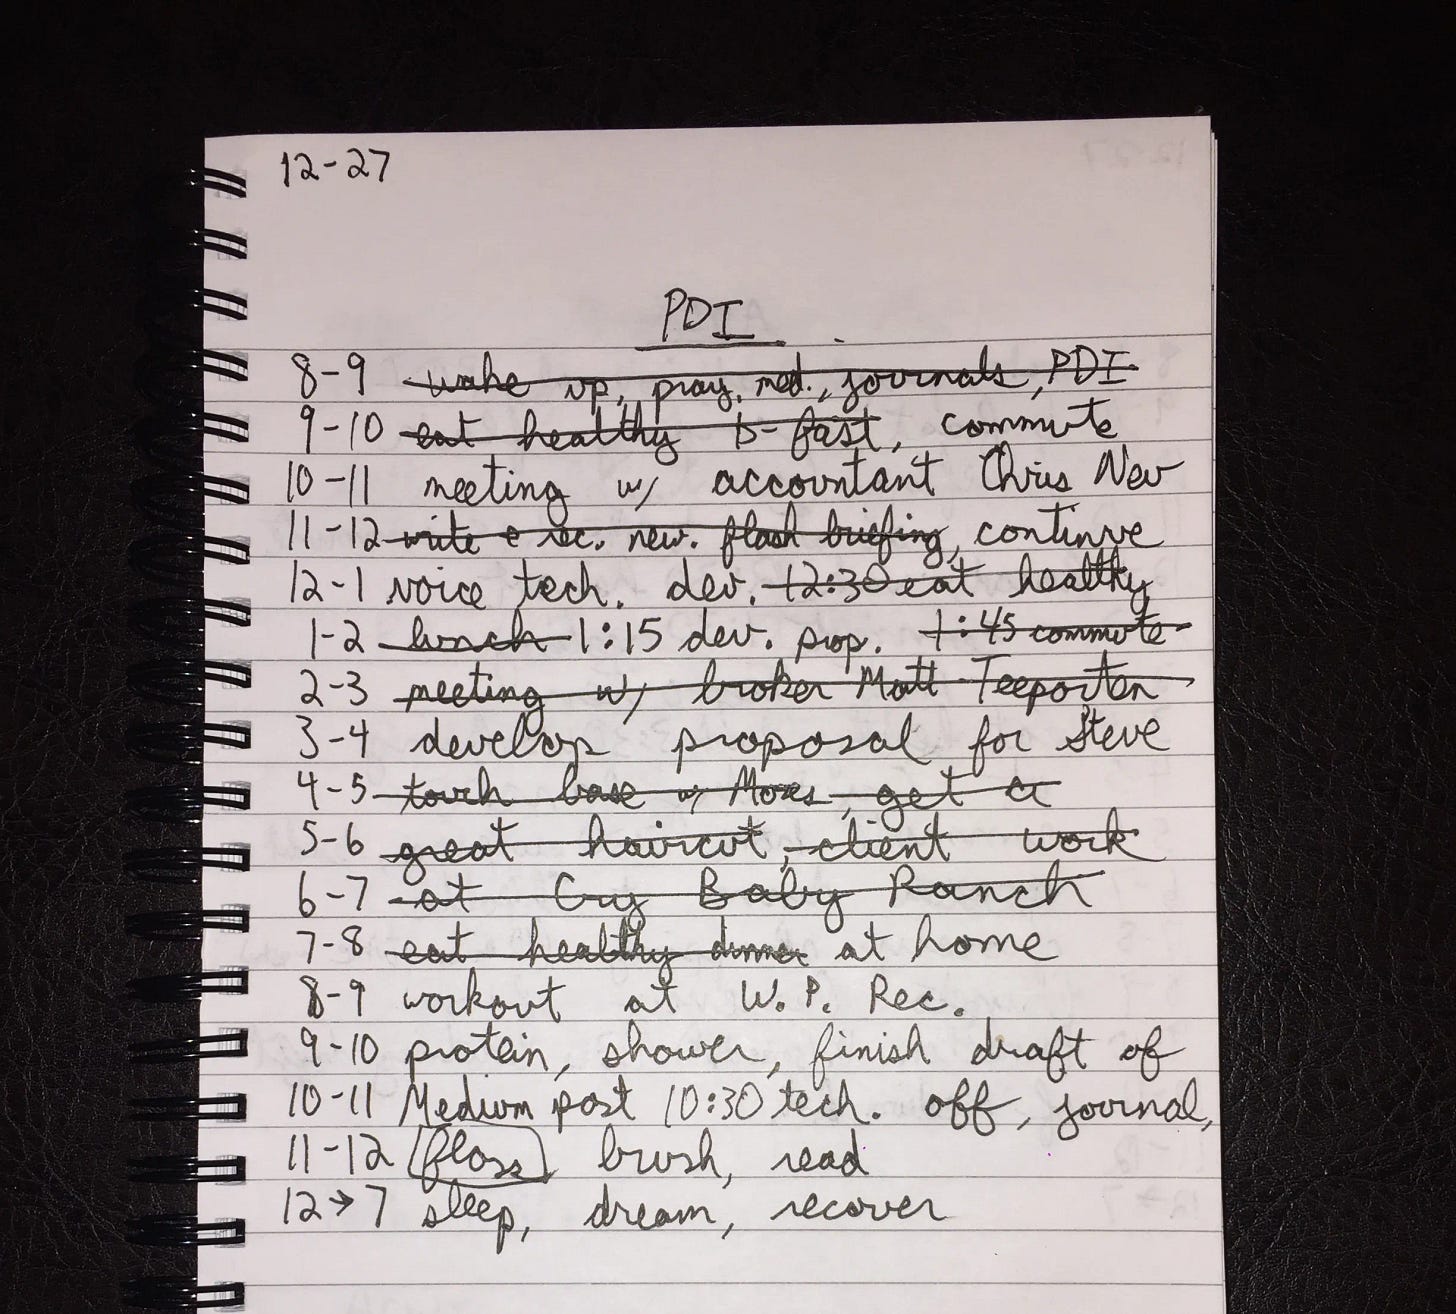 12-27
PDI
8-9 wake up, pray, med., journals, PDI
9-10 eat healthy b-fast, commute
10-11 meeting w/ accountant Chris New
11-12 write & rec. new. flash briefing, continue
12-1 voice tech. dev. 12:30 eat healthy
1-2 lunch 1:15 dev. prop. 1:45 commute
2-3 meeting w/ broker Matt Teeporten
3-4 develop proposal for Steve
4-5 touch base w/ Moses, get a
5-6 great haircut, client work
6-7 at Cry Baby Ranch
7-8 eat healthy dinner at home
8-9 workout at W.P. Rec.
9-10 protein, shower, finish draft of
10-11 Medium post 10:30 tech. off, journal,
11-12 floss, brush, read
12→7 sleep, dream, recover